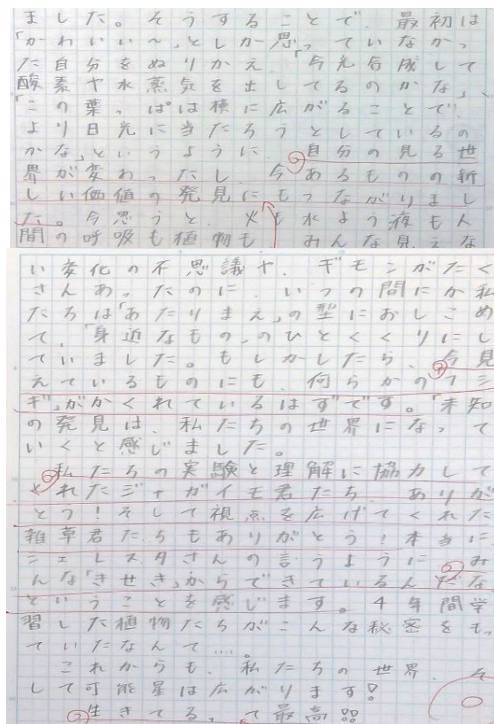 ました。そうすることで、最初は
「かわいい～」としか思っていなかっ
た自分をぬりかえ、「今光合成して
酸素や水蒸気を出してるのかな」
「この葉っぱは横に広がることで、
より日光に当たろうとしているの
かな」というように、自分の見る世
界が変わったし、今あるものの新
しい価値の発見にもつながりまし
た。今思うと、火も水よう液も人
間の呼吸も植物も、みんな見えな
い変化の不思議や、ギモンがたく
さんあったのに、いつの間にか私
たちは「あたりまえ」の型におしこめ
て、「身近なもの」のひとくくりにし
ていました。もしかしたら、今見
えているものにも、何らかの「フシ
ギ」がかくれているはずです。「未知
の発見は、私たちの世界になって
いくと感じました。
私たちの実験と理解に協力して
くれたジャガイモ君たち、ありが
とう！そして視点を広げてくれた
雑草君たちもありがとう！本当に、
シェレスタさんの言うように、み
んな「きせき」からできているんだな
ということを感じます。4年間学
習した植物たちがこんな秘密をもっ
ていたなんて……。
これからも、私たちの世界、そ
して可能星は広がります！
生きてる、って最高!!